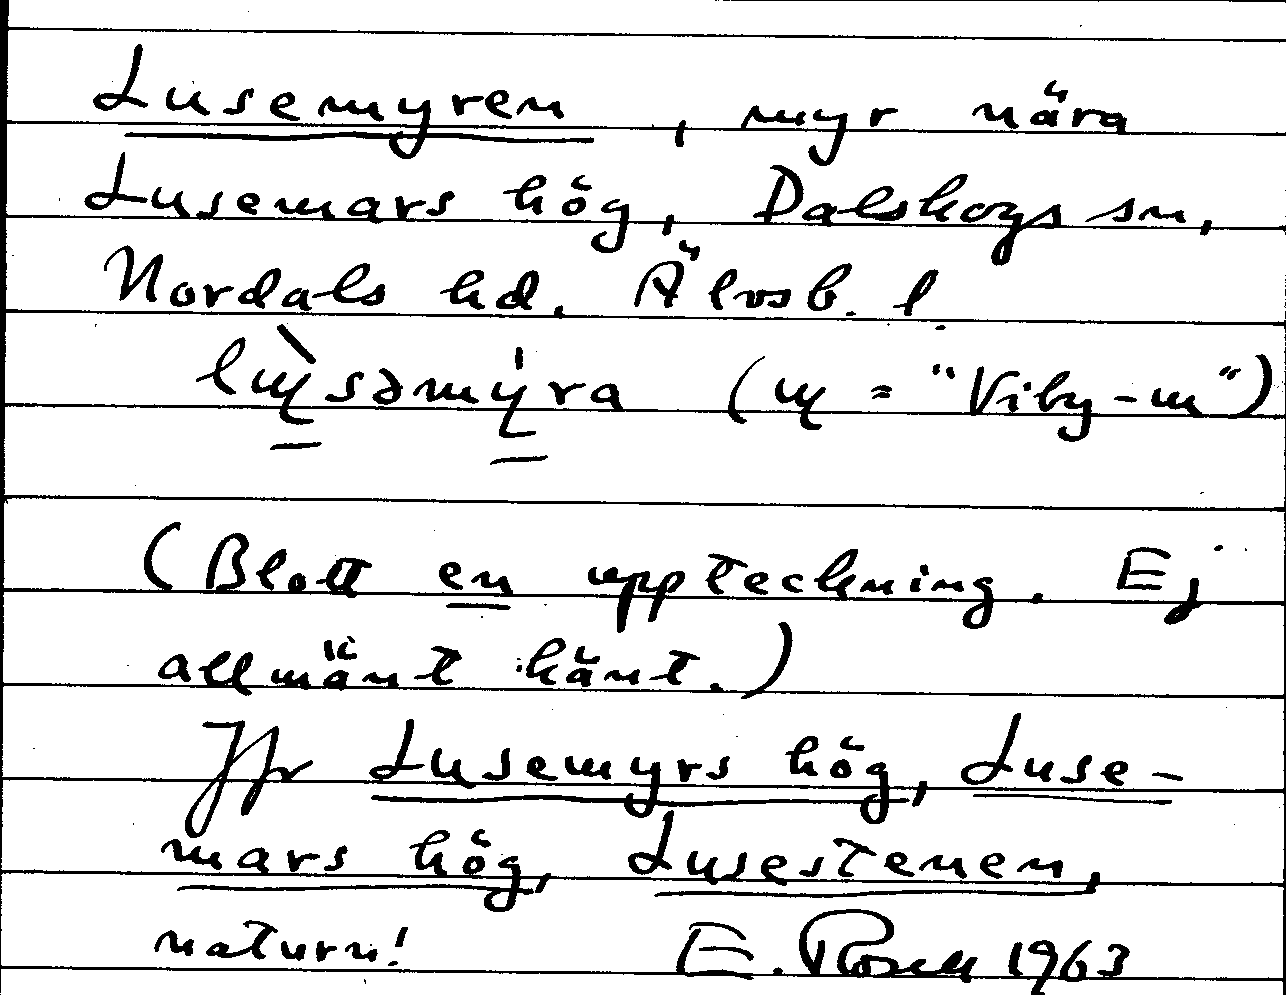 Lusemyren, myr nära
Lusemars hög, Dalskogs sn,
Nordals hd. Älvsb. l.
lų̀səmý̨ra (ų = "Viby-u")
(Blott en uppteckning. Ej
allmänt känt.)
Jfr Lusemyrs hög, Luse-
mars hög, Lusestenen,
naturn!
E. Rosell 1963